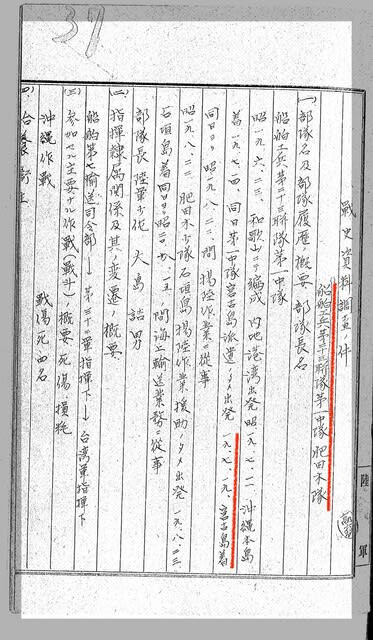 37
戦史資料調査件
船舶工兵第二十三聯隊第一中隊 肥田木隊
(一) 部隊名及部隊履歴ノ概要 部隊長名
船舶工兵第二十三聯隊第一中隊
昭一九、六、二三、和歌山ニテ編成 内地港湾出発 昭一九、七、一一 沖縄本島
着 一九、七、一四、同日第一中隊宮古島派遣ノタメ出発 一九、七、一九、宮古島着
同日ヨリ昭一九、八、二二、間 揚陸作業ニ従事
昭一九、八、二三、肥田木少隊石垣島揚陸作業援助ノタメ出発 一九、八、二三
石垣島着 同日ヨリ昭二〇、八、一五、間海上輸送業務ニ従事
部隊長 陸軍少佐 大島 詰男
(二) 指揮隷属関係及其ノ変遷ノ概要
船舶第七輸送司令部→第三十二軍指揮下→台湾軍指揮下
(三) 参加セル主要ナル作戦(戦斗)ノ概要 死傷損耗
沖縄作戦 戦傷死四名
(四)
陸軍